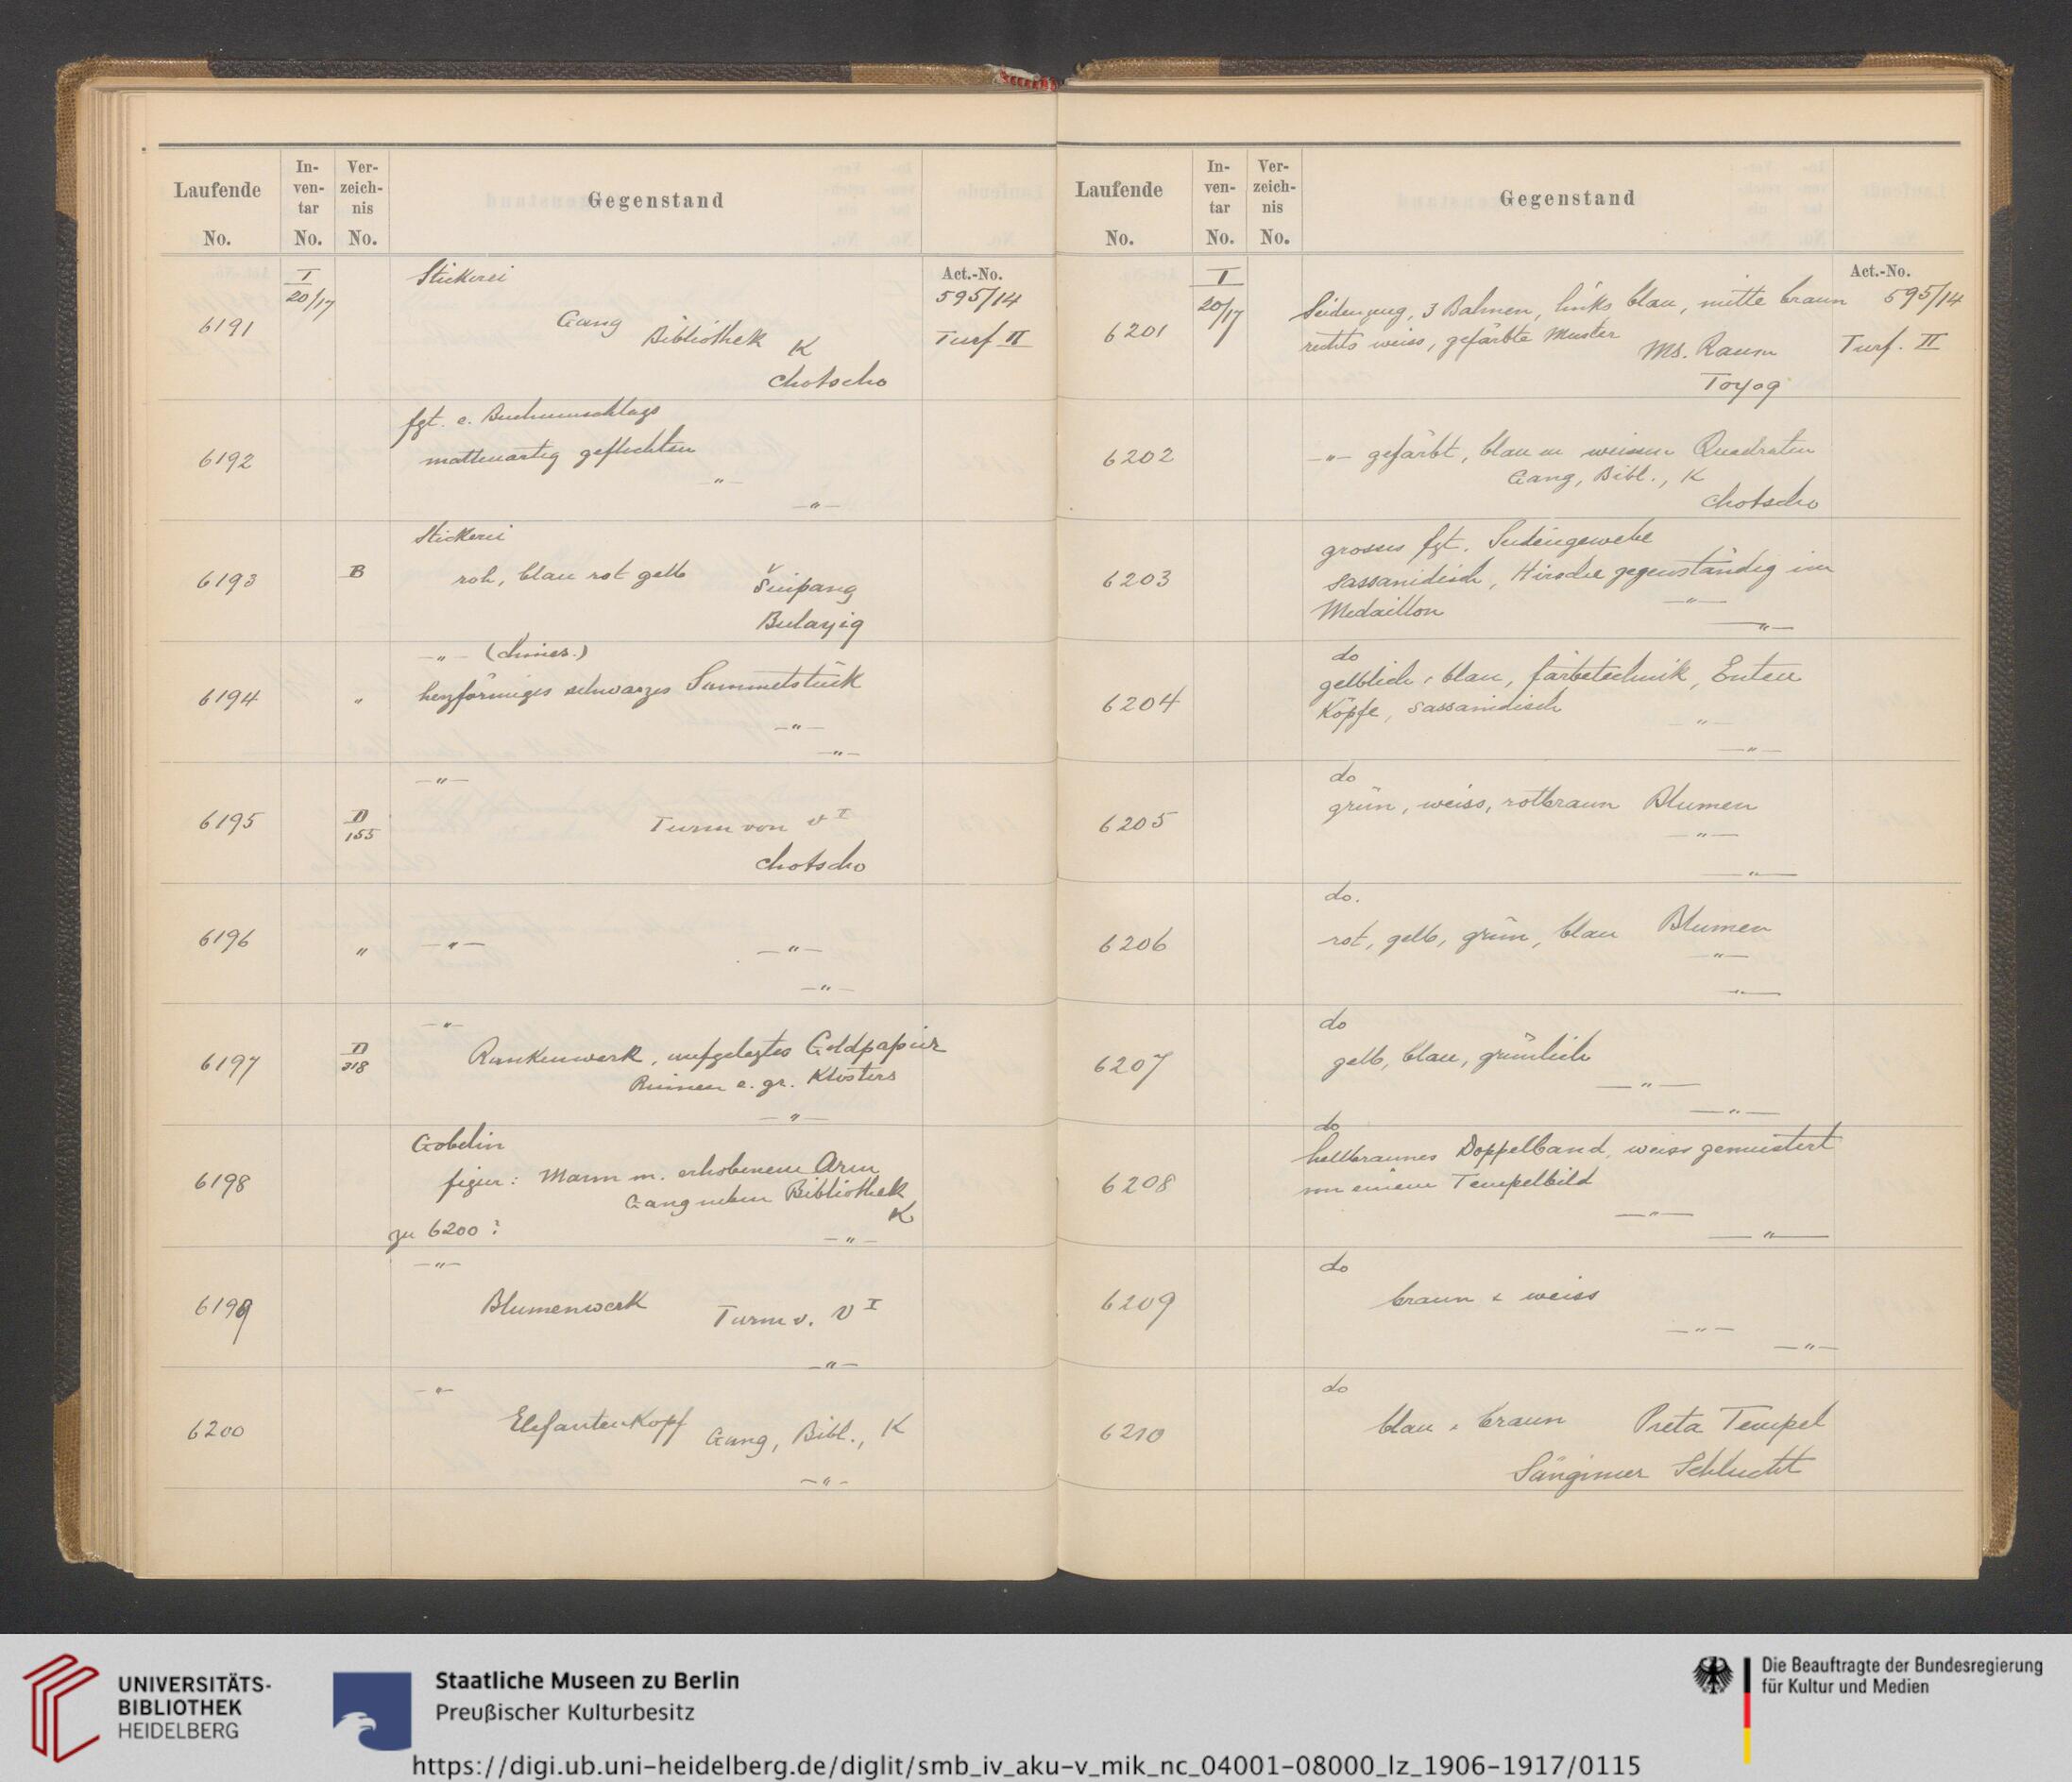 Laufende No.
In-ven-tar No.
Ver-zeich-nis No.
Gegenstand
Act.-No.
6191
I
20/17
Stickerei
Gang
Bibliothek K
Chotscho
595/14
Turf II
6192
fgt. e. Buchumschlags
mattenartig geflochten
—"—
—"—
6193
B
Stickerei
roh, blau rot gelb
Šuipang
Bulayiq
6194
"
—"— (chines.)
herzförmiges schwarzes Sammetstück
—"—
—"—
6195
D
155
—"—
Turm von V I
Chotscho
6196
"
—"— —"—
—"—
6197
D
318
—"—
Rankenwerk, aufgelegtes Goldpapier
Ruinen e. gr. Klosters
—"—
6198
Gobelin
figur: Mann m. erhobenem Arm
Gang neben Bibliothek
K
zu 6200 ?
—"—
6199
—"—
Blumenwerk
Turm v. V I
—"—
6200
—"—
Elefantenkopf Gang, Bibl., K
—"—
Laufende No.
In-ven-tar No.
Ver-zeich-nis No.
Gegenstand
Act.-No.
6201
I
20/17
Seidenzeug, 3 Bahnen, links blau, mitte braun
rechts weiss, gefärbte Muster
Ms. Raum
Toyoq
595/14
Turf. II
6202
—"— gefärbt, blau m weissen Quadraten
Gang, Bibl., K
Chotscho
6203
grosses fgt. Seidengewebe
sassanidisch, Hirsche gegenständig im
Medaillon
—"—
—"—
6204
do
gelblich & blau, färbetechnik, Enten
Köpfe, sassanidisch
—"—
—"—
6205
do
grün, weiss, rotbraun Blumen
—"—
—"—
6206
do.
rot, gelb, grün, blau Blumen
—"—
—"—
6207
do
gelb, blau, grünlich
—"—
—"—
6208
do
hellbraunes Doppelband, weiss gemustert
von einem Tempelbild
—"—
—"—
6209
do
braun & weiss
—"—
—"—
6210
do
blau & braun Preta Tempel
Sängimer Schlucht
UNIVERSITÄTS-
BIBLIOTHEK
HEIDELBERG
Staatliche Museen zu Berlin
Preußischer Kulturbesitz
Die Beauftragte der Bundesregierung
für Kultur und Medien
https://digi.ub.uni-heidelberg.de/diglit/smb_iv_aku-v_mik_nc_04001-08000_lz_1906-1917/0115